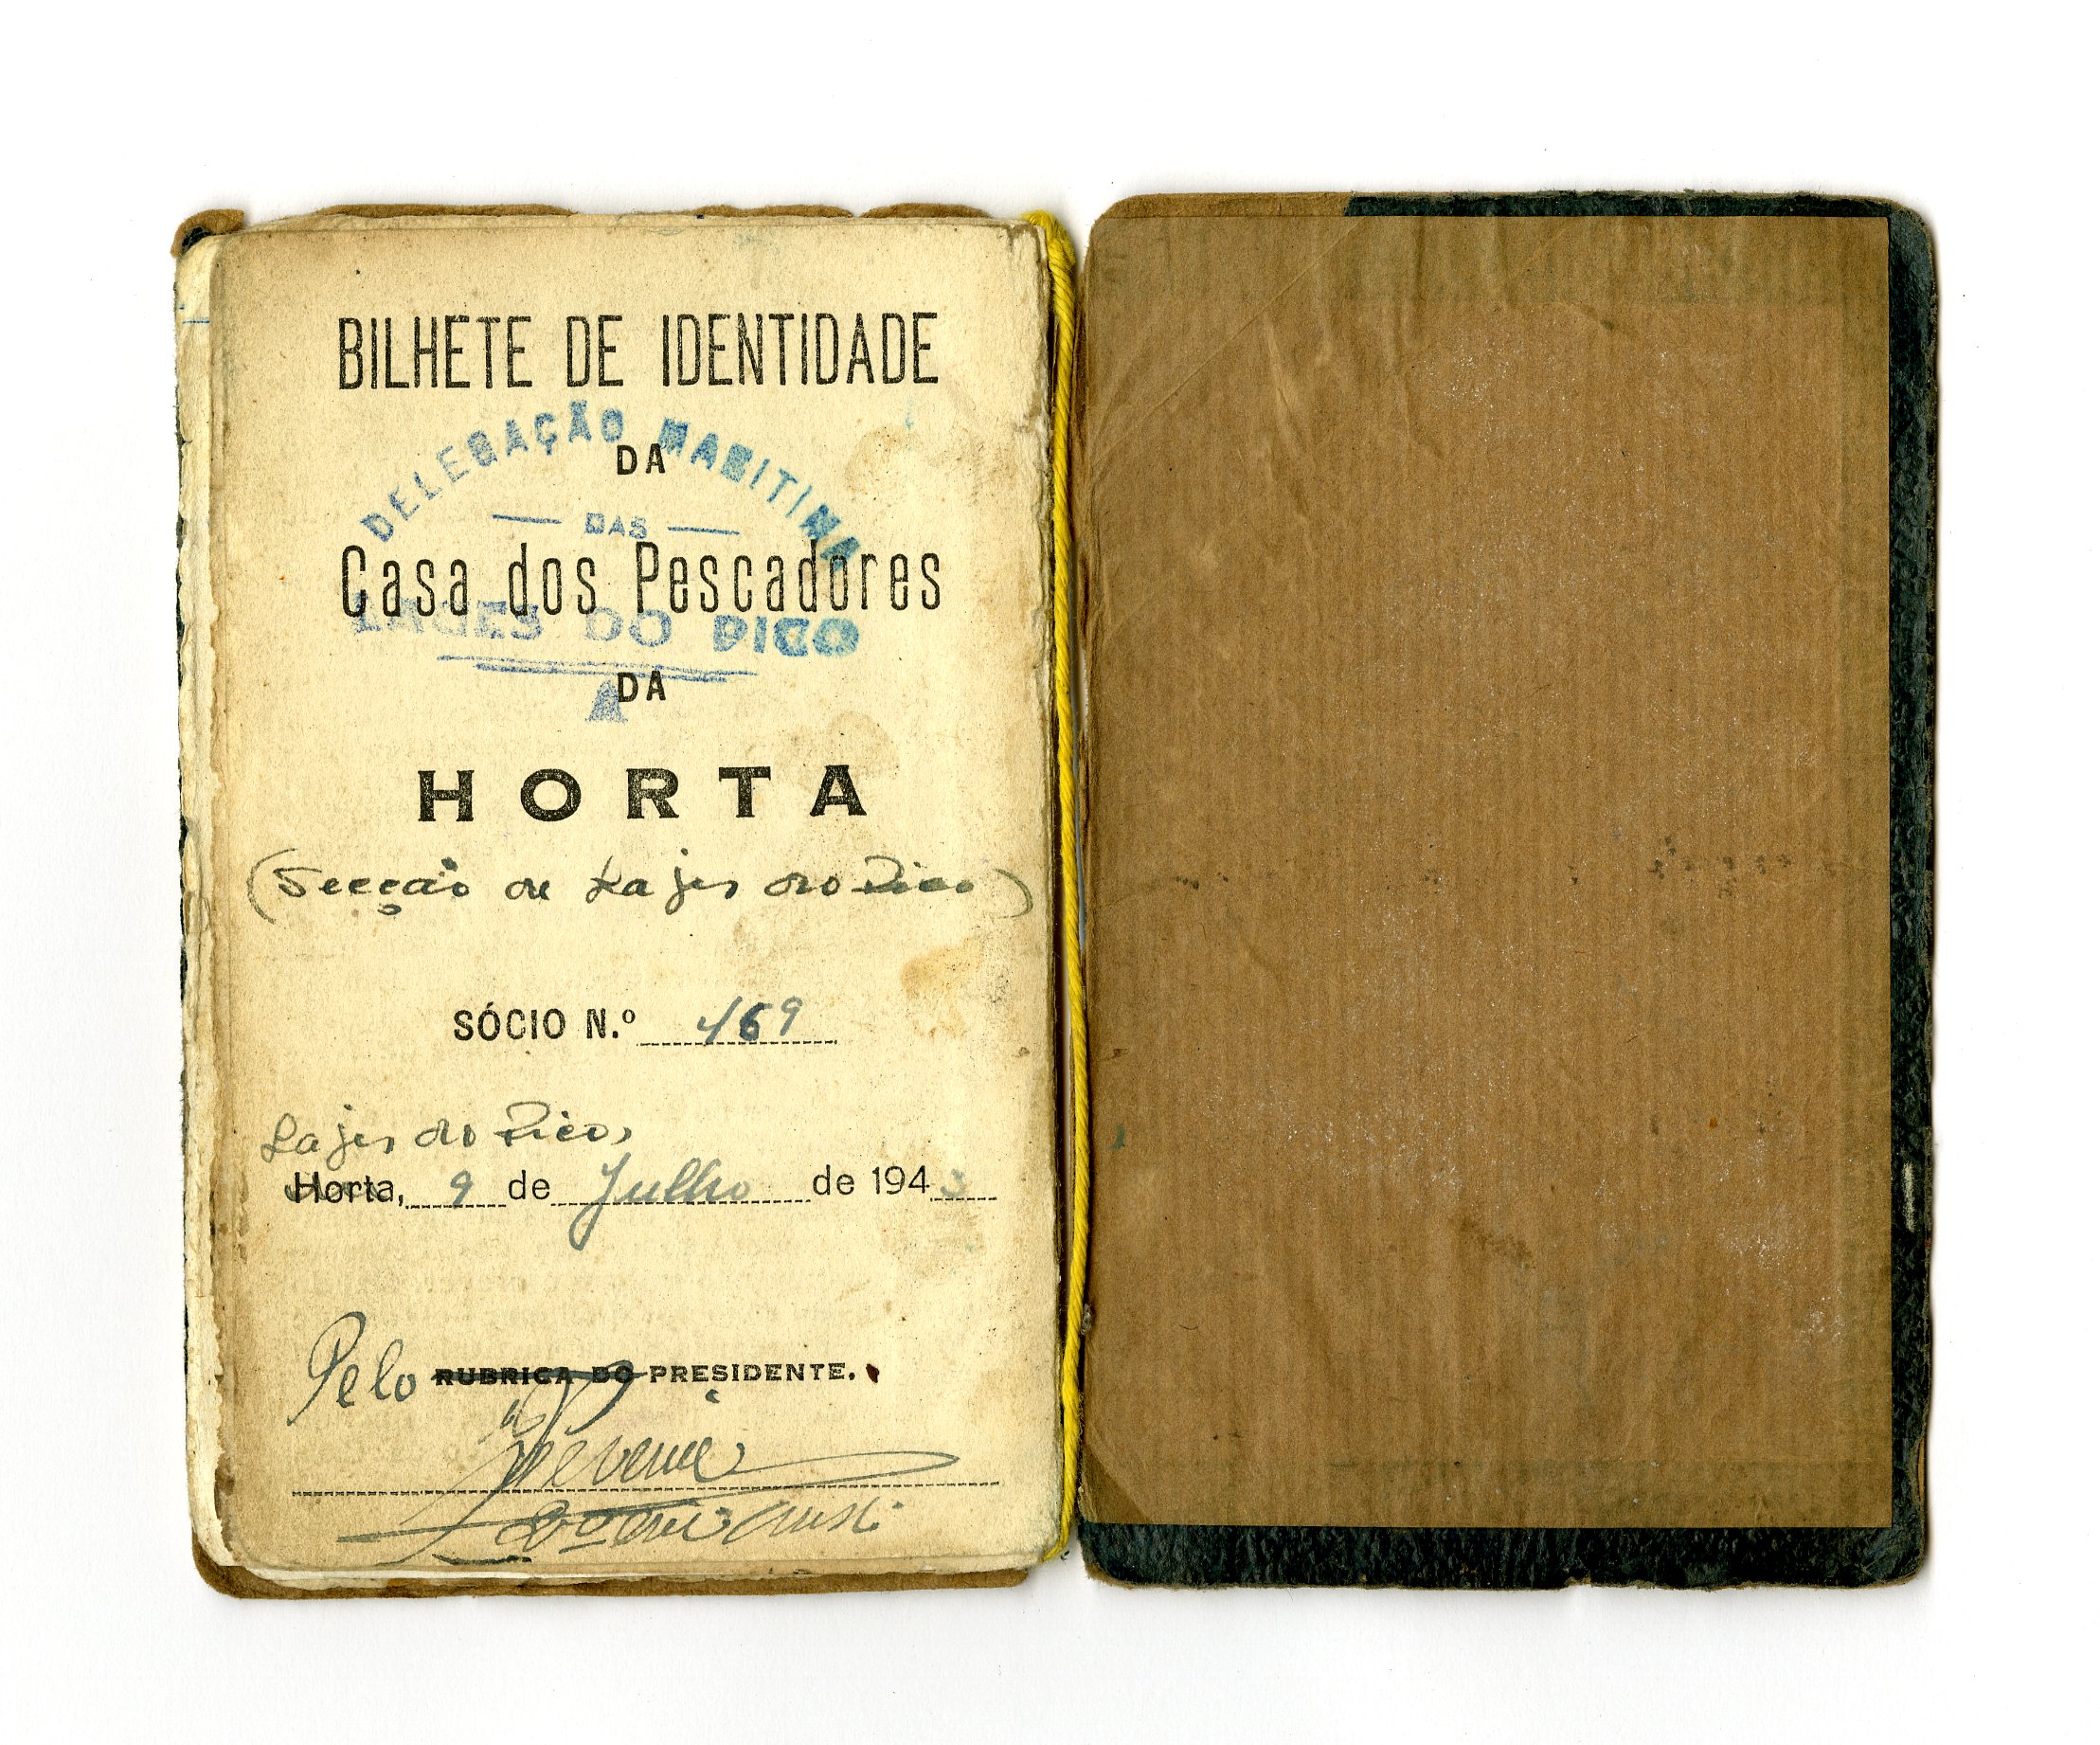 BILHETE DE IDENTIDADE
DELEGAÇÃO MARITIMA
DA
DAS
Casa dos Pescadores
LAGES DO PICO
DA
HORTA
(Secção de Lajes do Pico)
SÓCIO N.º 469
Lajes do Pico,
Horta, 9 de Julho de 1943
Pelo RUBRICA DO PRESIDENTE.